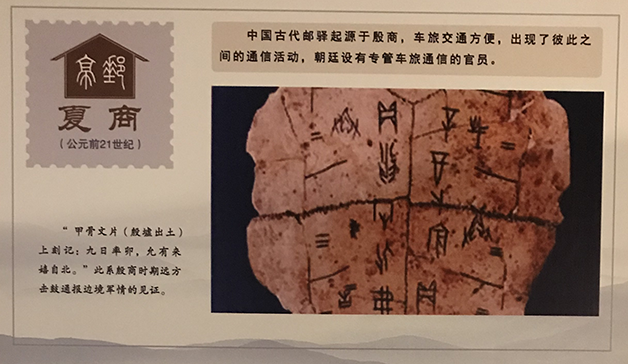 中国古代邮驿起源于殷商，车旅交通方便，出现了彼此之
间的通信活动，朝廷设有专管车旅通信的官员。
夏商
（公元前21世纪）
“甲骨文片（殷墟出土）
上刻记：九日辛卯，允有来
嬉自北。”此系殷商时期远方
击鼓通报边境军情的见证。